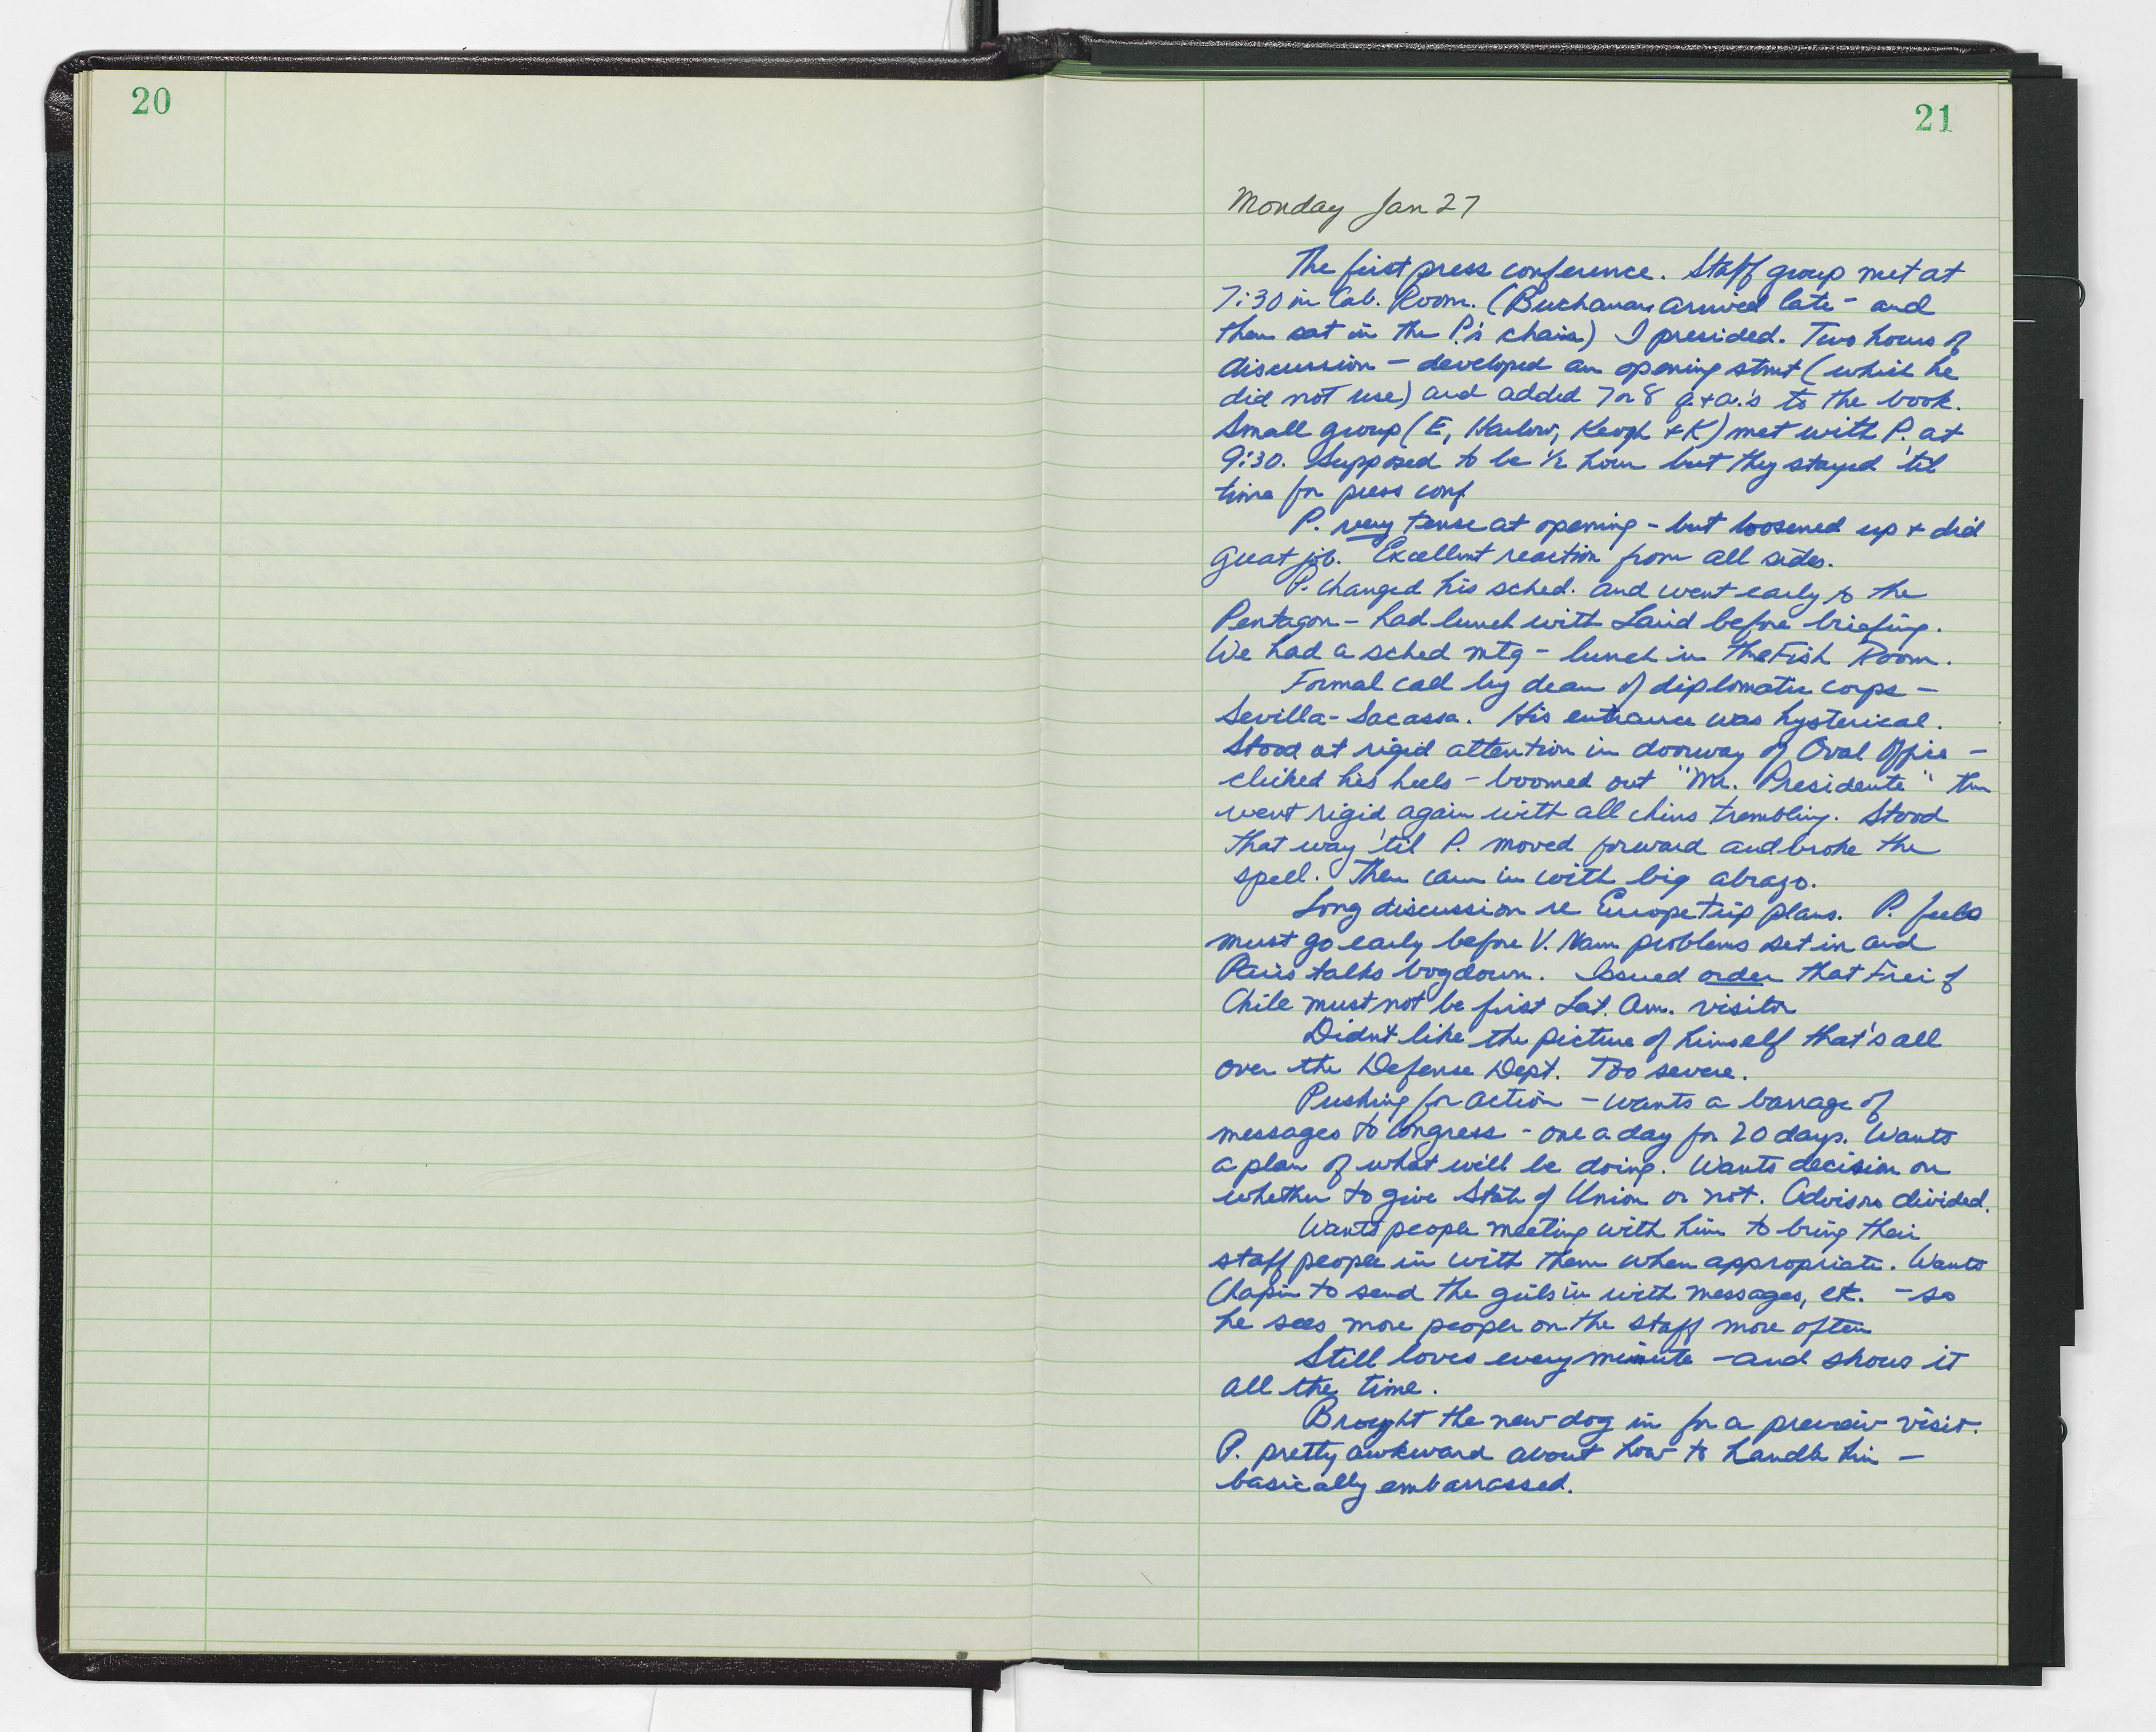 20
21
Monday Jan 27
The first press conference. Staff group met at
7:30 in Cab. Room. (Buchanan arrived late - and
then sat in the P.'s chair) I presided. Two hours of
discussion - developed an opening stmt (which he
did not use) and added 7 or 8 q.+a.'s to the book.
Small group (E, Harlow, Keogh + K) met with P. at
9:30. Supposed to be ½ hour but they stayed 'til
time for press conf.
P. very tense at opening - but loosened up + did
great job. Excellent reaction from all sides.
P. changed his sched. and went early to the
Pentagon - had lunch with Laird before briefing.
We had a sched mtg - lunch in the Fish Room.
Formal call by dean of diplomatic corps -
Sevilla-Sacassa. His entrance was hysterical.
Stood at rigid attention in doorway of Oval Office -
clicked his heels - boomed out "Mr. Presidente" then
went rigid again with all chins trembling. Stood
that way 'til P. moved forward and broke the
spell. Then came in with big abrazo.
Long discussion re Europe trip plans. P. feels
must go early before V. Nam problems set in and
Paris talks bog down. Issued order that Frei of
Chile must not be first Lat. Am. visitor
Didn't like the picture of himself that's all
over the Defense Dept. Too severe.
Pushing for action - wants a barrage of
messages to Congress - one a day for 20 days. Wants
a plan of what we'll be doing. Wants decision on
whether to give State of Union or not. Advisors divided.
Wants people meeting with him to bring their
staff people in with them when appropriate. Wants
Chapin to send the girls in with messages, etc. - so
he sees more people on the staff more often
Still loves every minute - and shows it
all the time.
Brought the new dog in for a preview visit.
P. pretty awkward about how to handle him -
basically embarrassed.